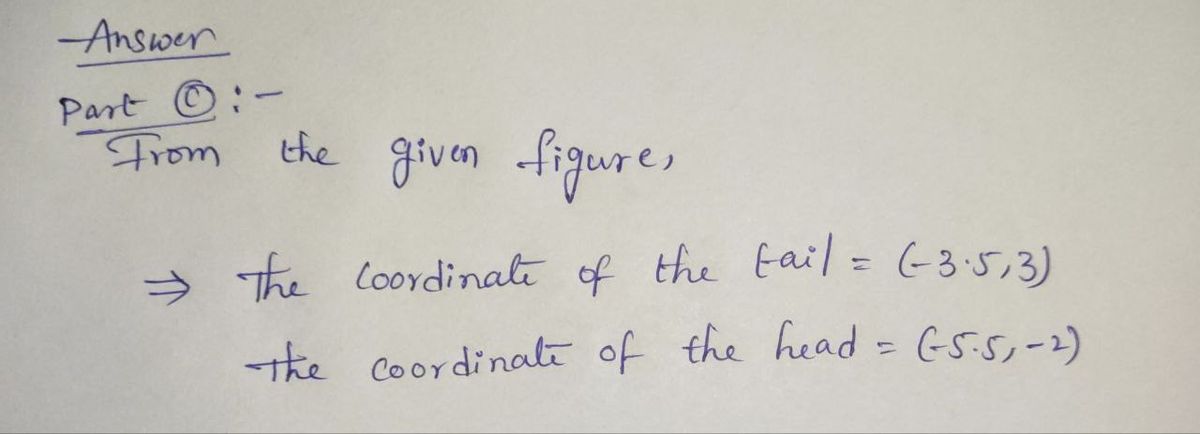 Answer
Part ©:-
From the given figure,
⇒ The Coordinate of the tail = (-3.5,3)
The coordinate of the head = (-5.5,-2)